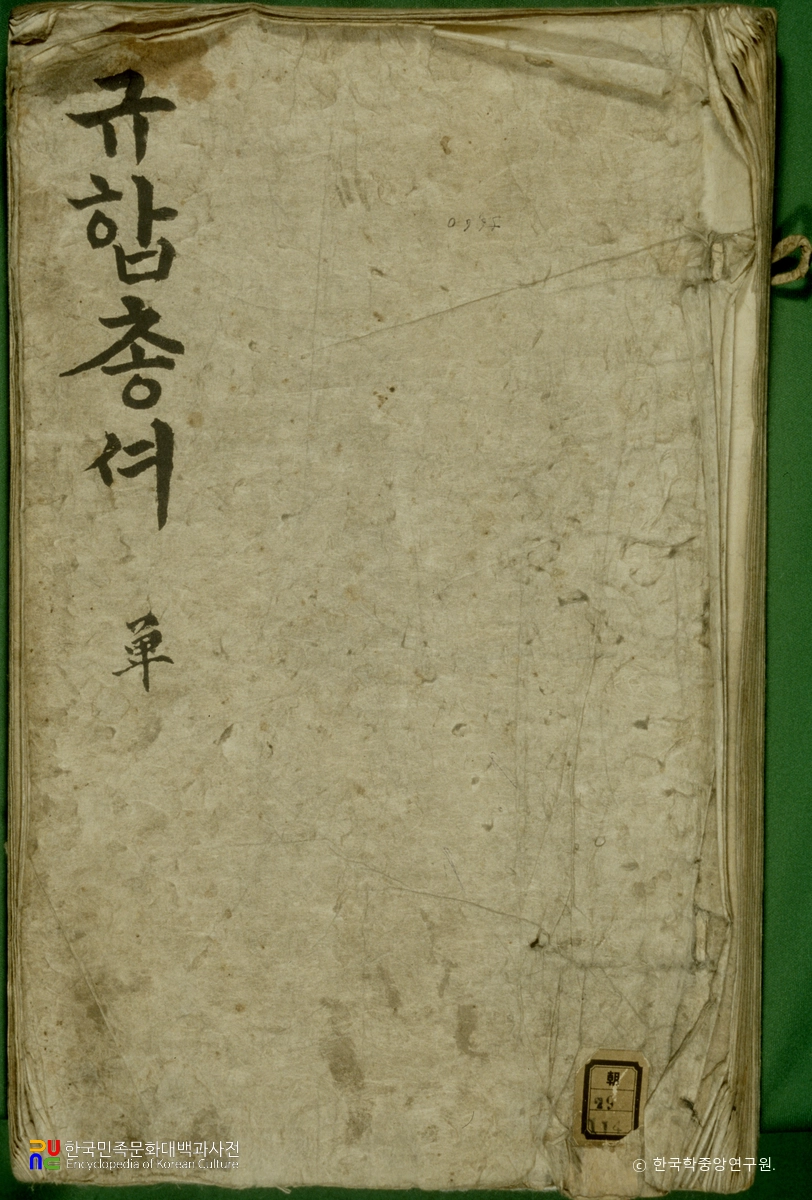 규합총셔
単
朝
한국민족문화대백과사전
Encyclopedia of Korean Culture
© 한국학중앙연구원.